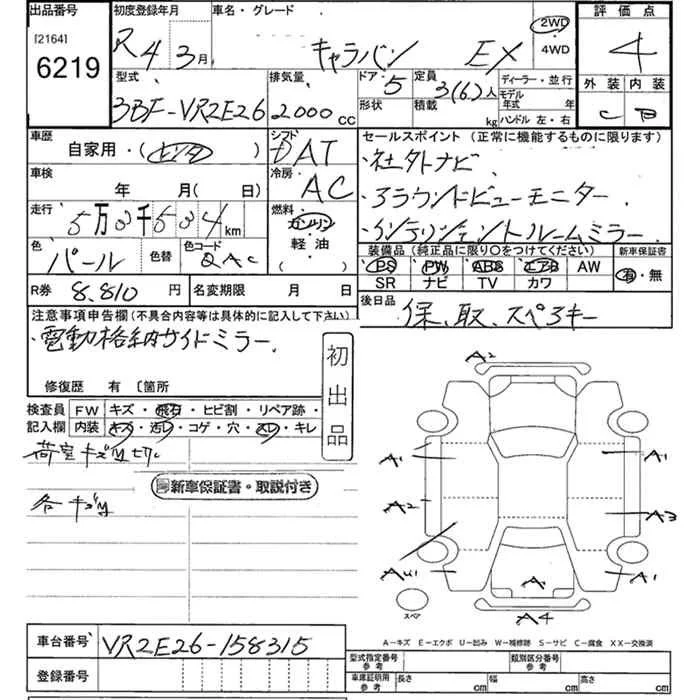 出品番号
[2164]
6219
初度登録年月
R4 3月
車名・グレード
キャラバン EX
2WD
・
4WD
評価点
4
外装 内装
C B
型式
3BF-VR2E26
排気量
2000 CC
ドア・ 5
形状
定員
3(6)人
積載 kg
ディーラー・並行
モデル年式 年
ハンドル 左・右
車歴
自家用・( )
シフト
DAT
車検
年 月( 日)
冷房
AC
走行
5万3千534km
燃料
ガソリン
・
軽・油
・( )
色
パール
色替
色コード
QAC
R券 8,810 円
名変期限 月 日
セールスポイント (正常に機能するものに限ります)
・社外ナビ
・アラウンドビューモニター
・インテリジェントルームミラー
装備品(純正品に限り〇をつけてください)
PS PW ABS エアB AW
SR ナビ TV カワ
新車保証書
有・無
後日品
保、取、スペアキー
注意事項申告欄(不具合内容等は具体的に記入して下さい)
・電動格納サイドミラー
修復歴 有 〔箇所
初出品
検査員記入欄
FW キズ・飛石・ヒビ割・リペア跡・
内装 キズ・汚レ・コゲ・穴・スレ・キレ
荷室キズ
各キズ
新車保証書・取説付き
A2
A1
A1
A2
A3
A
A1
A4
スペア
A-キズ E-エクボ U-凹み W-補修跡 S-サビ C-腐食 XX-交換済
車台番号 VR2E26-158315
登録番号
型式指定番号
参考
類別区分番号
参考
車庫証明用
参考
長さ cm
幅 cm
高さ cm